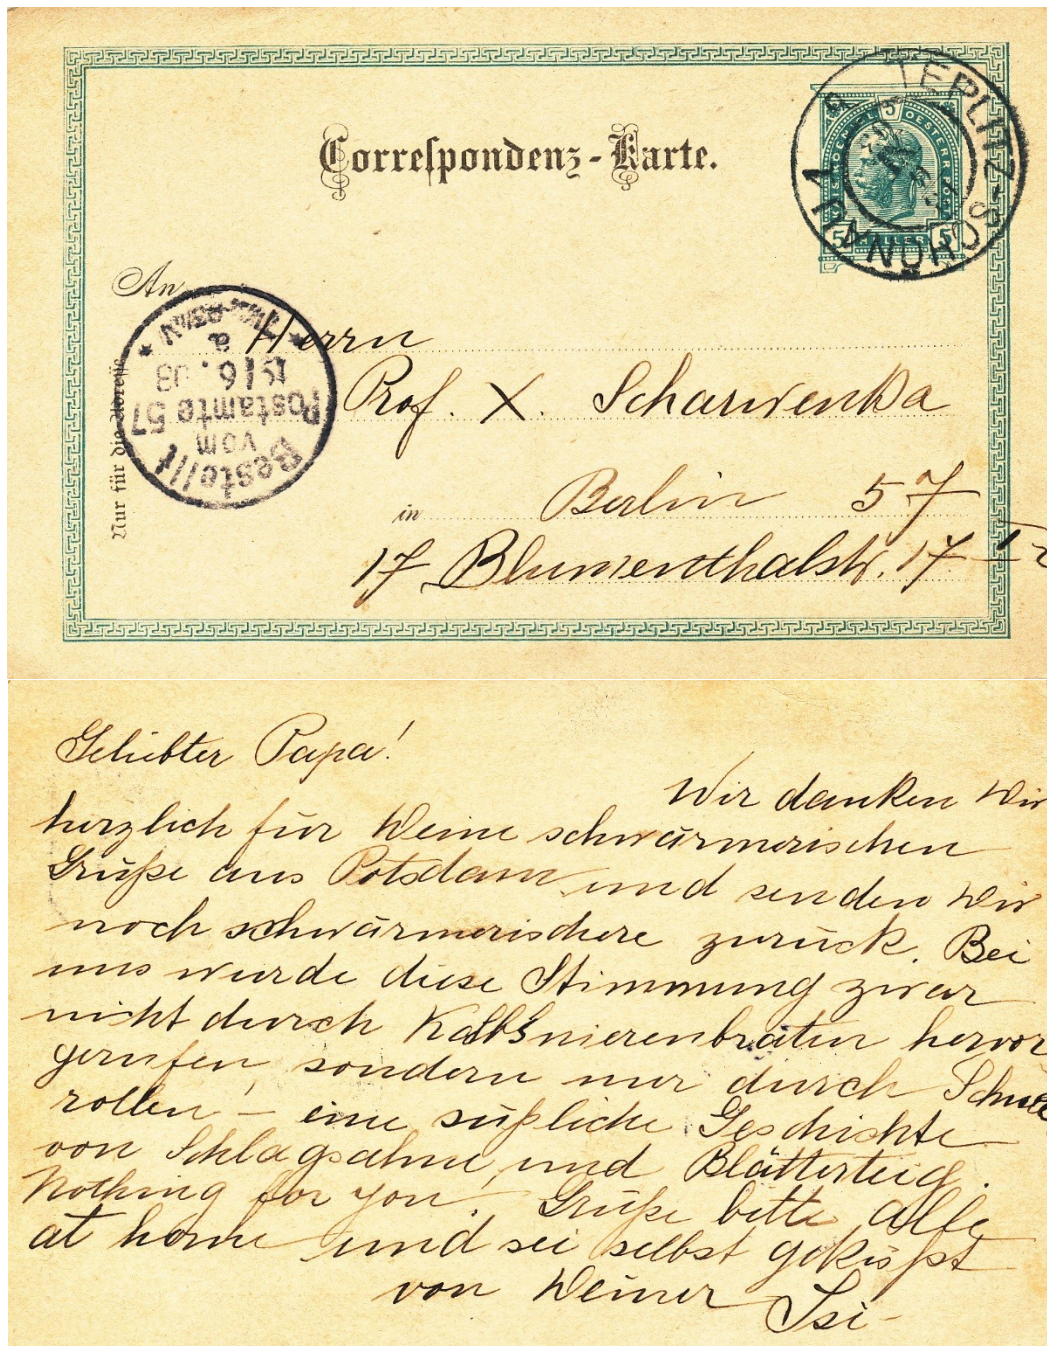 Correspondenz-Karte.
TEPLITZ-SCHÖNAU
KAIS. KOENIGL. OESTERR. POST
5
5 HELLER 5
An
Herrn
Prof. X. Scharwenka
in Berlin 57
17 Blumenthalstr. 17
Nur für die Adresse
Bestellt
vom
Postamte 57
19/6. 03
a
Geliebter Papa!
Wir danken Dir
herzlich für Deine schwärmerischen
Grüße aus Potsdam und senden Dir
noch schwärmerischere zurück. Bei
uns wurde diese Stimmung zwar
nicht durch Kalbsnierenbraten hervor
gerufen, sondern nur durch
rollen! – eine süßliche Geschichte
von Schlagsahne und Blätterteig.
Nothing for you! Grüße bitte alle
at home und sei selbst geküßt
von Deiner Isi-